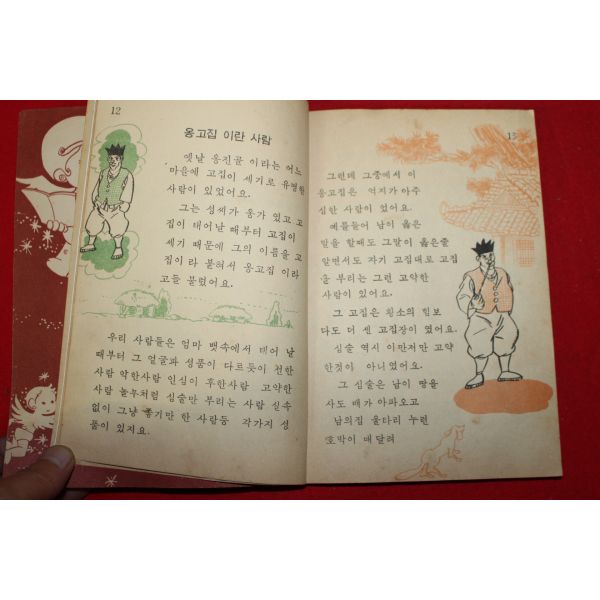 12
옹고집 이란 사람
옛날 옹진골 이라는 어느
마을에 고집이 세기로 유명한
사람이 있었어요.
그는 성씨가 옹가 있고 고
집이 태어날 때부터 고집이
세기 때문에 그의 이름을 고
집이라 붙혀서 옹고집 이라
고들 불렀어요.
우리 사람들은 엄마 뱃속에서 태어 날
때부터 그 얼굴과 성품이 다르듯이 천한
사람 악한사람 인심이 후한사람 고약한
사람 놀부처럼 심술만 부리는 사람 실속
없이 그냥 좋기만 한 사람등 각가지 성
품이 있지요.
13
그런데 그중에서 이
옹고집은 억지가아주
심한 사람이 었어요.
예를들어 남이 옳은
말을 할때도 그말이 옳은줄
알면서도 자기 고집대로 고집
을 부리는 그런 고약한
사람이 있어요.
그 고집은 황소의 힘보
다도 더 센 고집장이 였어요.
심술 역시 이만저만 고약
한것이 아니었어요.
그 심술은 남이 땅을
사도 배가 아파오고
남의집 울타리 누런
호박이 매달려